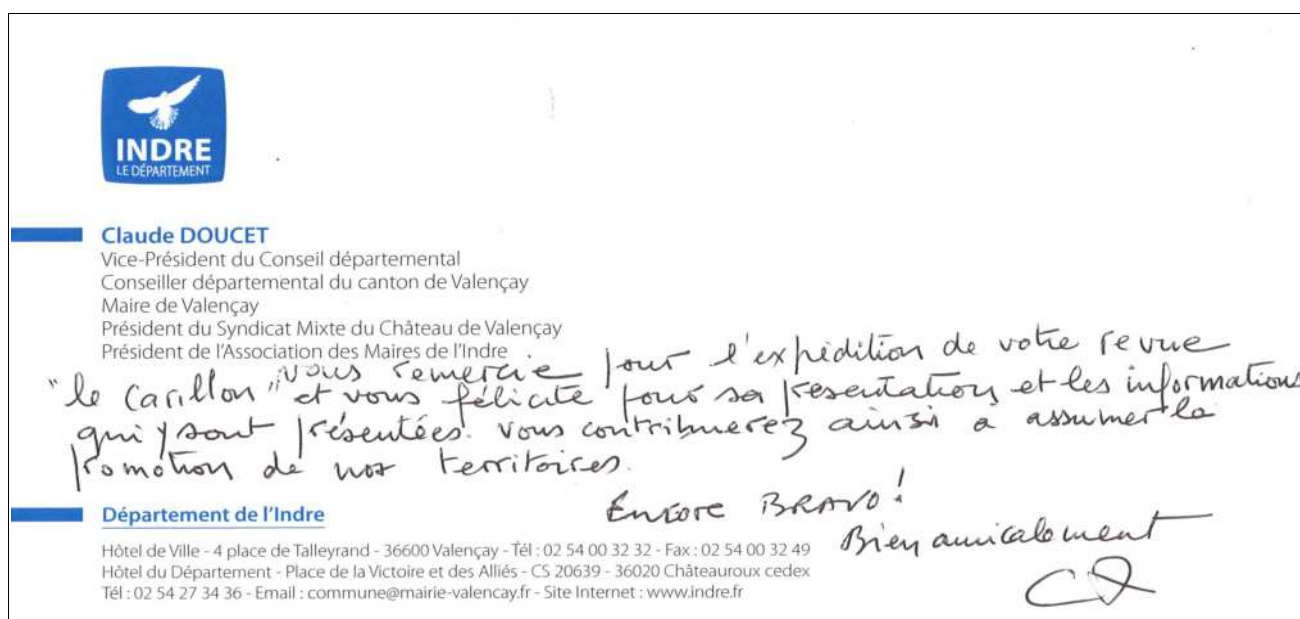 INDRE
LE DÉPARTEMENT
Claude DOUCET
Vice-Président du Conseil départemental
Conseiller départemental du canton de Valençay
Maire de Valençay
Président du Syndicat Mixte du Château de Valençay
Président de l'Association des Maires de l'Indre
vous remercie pour l'expédition de votre revue
"le Carillon" et vous félicite pour sa présentation et les informations
qui y sont présentées. Vous contribuerez ainsi à assumer la
promotion de nos territoires.
Encore BRAVO!
Bien amicalement
CD
Département de l'Indre
Hôtel de Ville - 4 place de Talleyrand - 36600 Valençay - Tél : 02 54 00 32 32 - Fax : 02 54 00 32 49
Hôtel du Département - Place de la Victoire et des Alliés - CS 20639 - 36020 Châteauroux cedex
Tél : 02 54 27 34 36 - Email : commune@mairie-valencay.fr - Site Internet : www.indre.fr